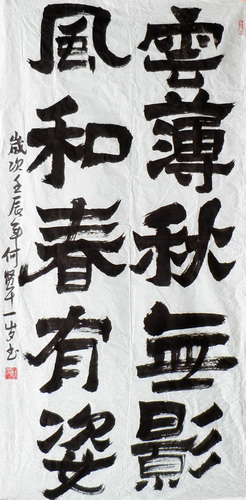 雲薄秋無影
風和春有姿
歲次壬辰年何一岁书